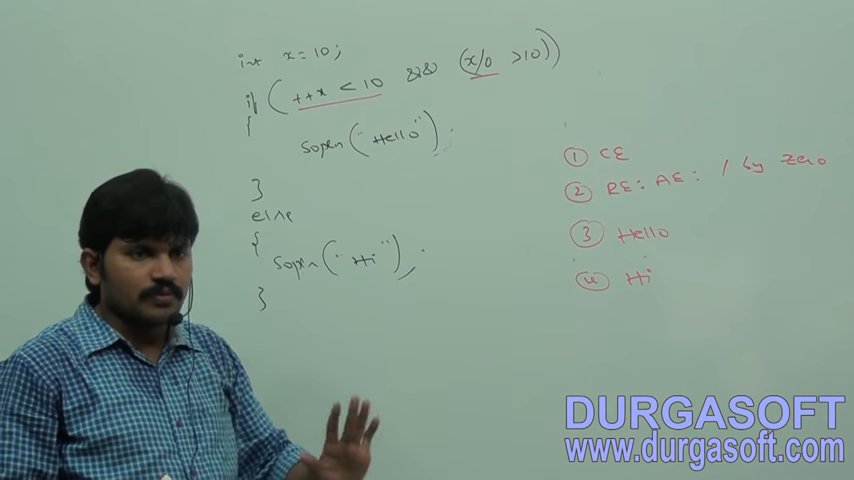 int x = 10;
if ( ++x < 10 && (x/0 > 10))
{
Sopln("Hello");
}
else
{
Sopln("Hi");
}
① CE
② RE: AE: / by zero
③ Hello
④ Hi
DURGASOFT
www.durgasoft.com